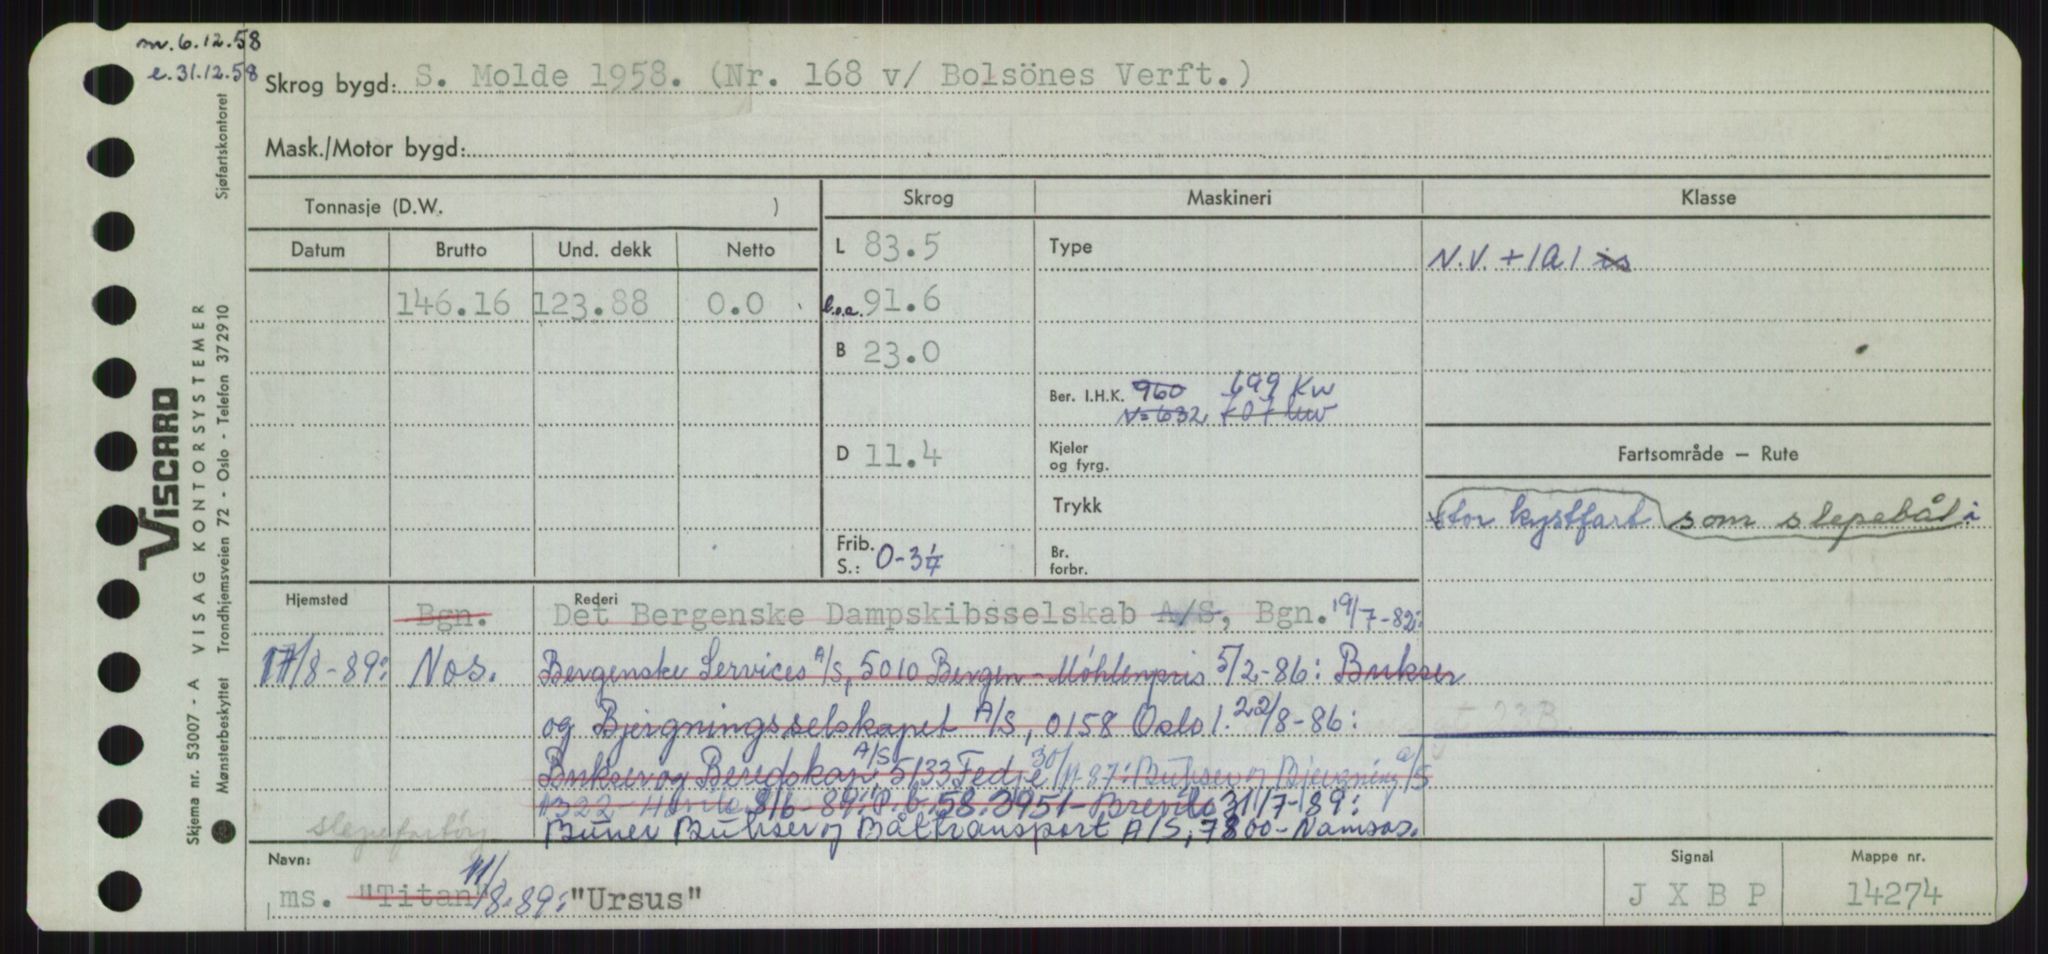 m. 6.12.58
e. 31.12.58
Skrog bygd: S. Molde 1958. (Nr. 168 v/ Bolsönes Verft.)
Mask./Motor bygd:
Tonnasje (D.W. )
Datum Brutto Und. dekk Netto
146.16 123.88 0.0
Skrog
L 83.5
l.o.a. 91.6
B 23.0
D 11.4
Frib. S.: 0-3
Maskineri
Type
Ber. I.H.K. 960 699 Kw
N=632
Kjeler og fyrg.
Trykk
Br. forbr.
Klasse
N.V. +1A1 is
Fartsområde — Rute
stor kystfart som slepebåt i
Hjemsted Rederi
Bgn. Det Bergenske Dampskibsselskab A/S, Bgn. 19/7-82:
17/8-89: Nos. Bergenske Services A/S, 5010 Bergen-Møhlenpris 5/2-86: Bukser
og Bjergningsselskapet A/S, 0158 Oslo 1. 22/8-86:
Bukser og Beredskap A/S, 5133 Fedje 30/11-87: Bukser og Bjergning a/s
1322- 8/6-89: P.b. 58. 3951- Brevik 31/7-89:
Buner Bukser og Båttransport A/S, 7800-Namsos.
slepefartøy
Navn:
ms. "Titan" 11/8-89: "Ursus"
Signal
J X B P
Mappe nr.
14274
Sjøfartskontoret
VISCARD
VISAG KONTORSYSTEMER
Trondhjemsveien 72 - Oslo - Telefon 372910
Skjema nr. 53007 - A
Mønsterbeskyttet